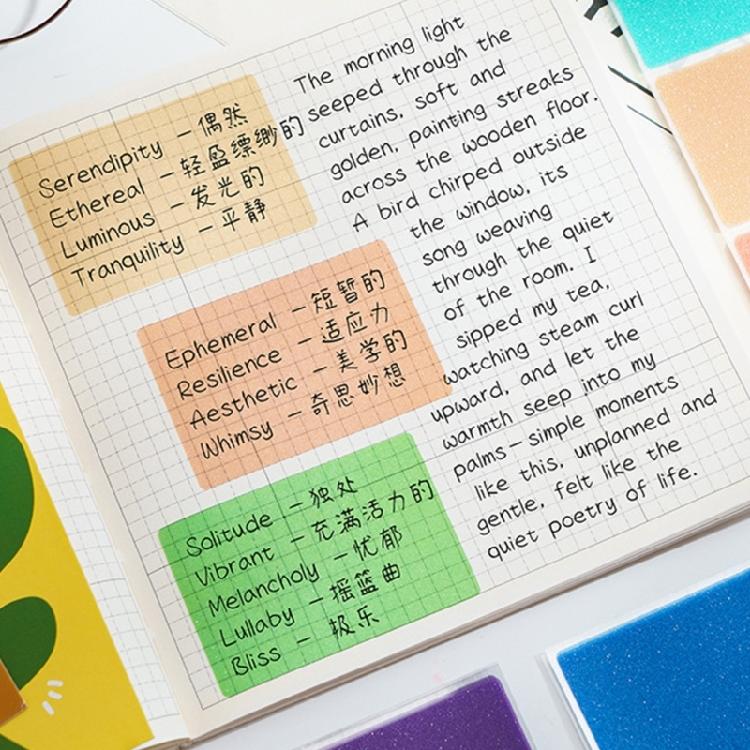 Serendipity - 偶然
Ethereal - 轻盈缥缈的
Luminous - 发光的
Tranquility - 平静
Ephemeral - 短暂的
Resilience - 适应力
Aesthetic - 美学的
Whimsy - 奇思妙想
Solitude - 独处
Vibrant - 充满活力的
Melancholy - 忧郁
Lullaby - 摇篮曲
Bliss - 极乐
The morning light
seeped through the
curtains, soft and
golden, painting streaks
across the wooden floor.
A bird chirped outside
the window, its
song weaving
through the quiet
of the room. I
sipped my tea,
watching steam curl
upward, and let the
warmth seep into my
palms - simple moments
like this, unplanned and
gentle, felt like the
quiet poetry of life.